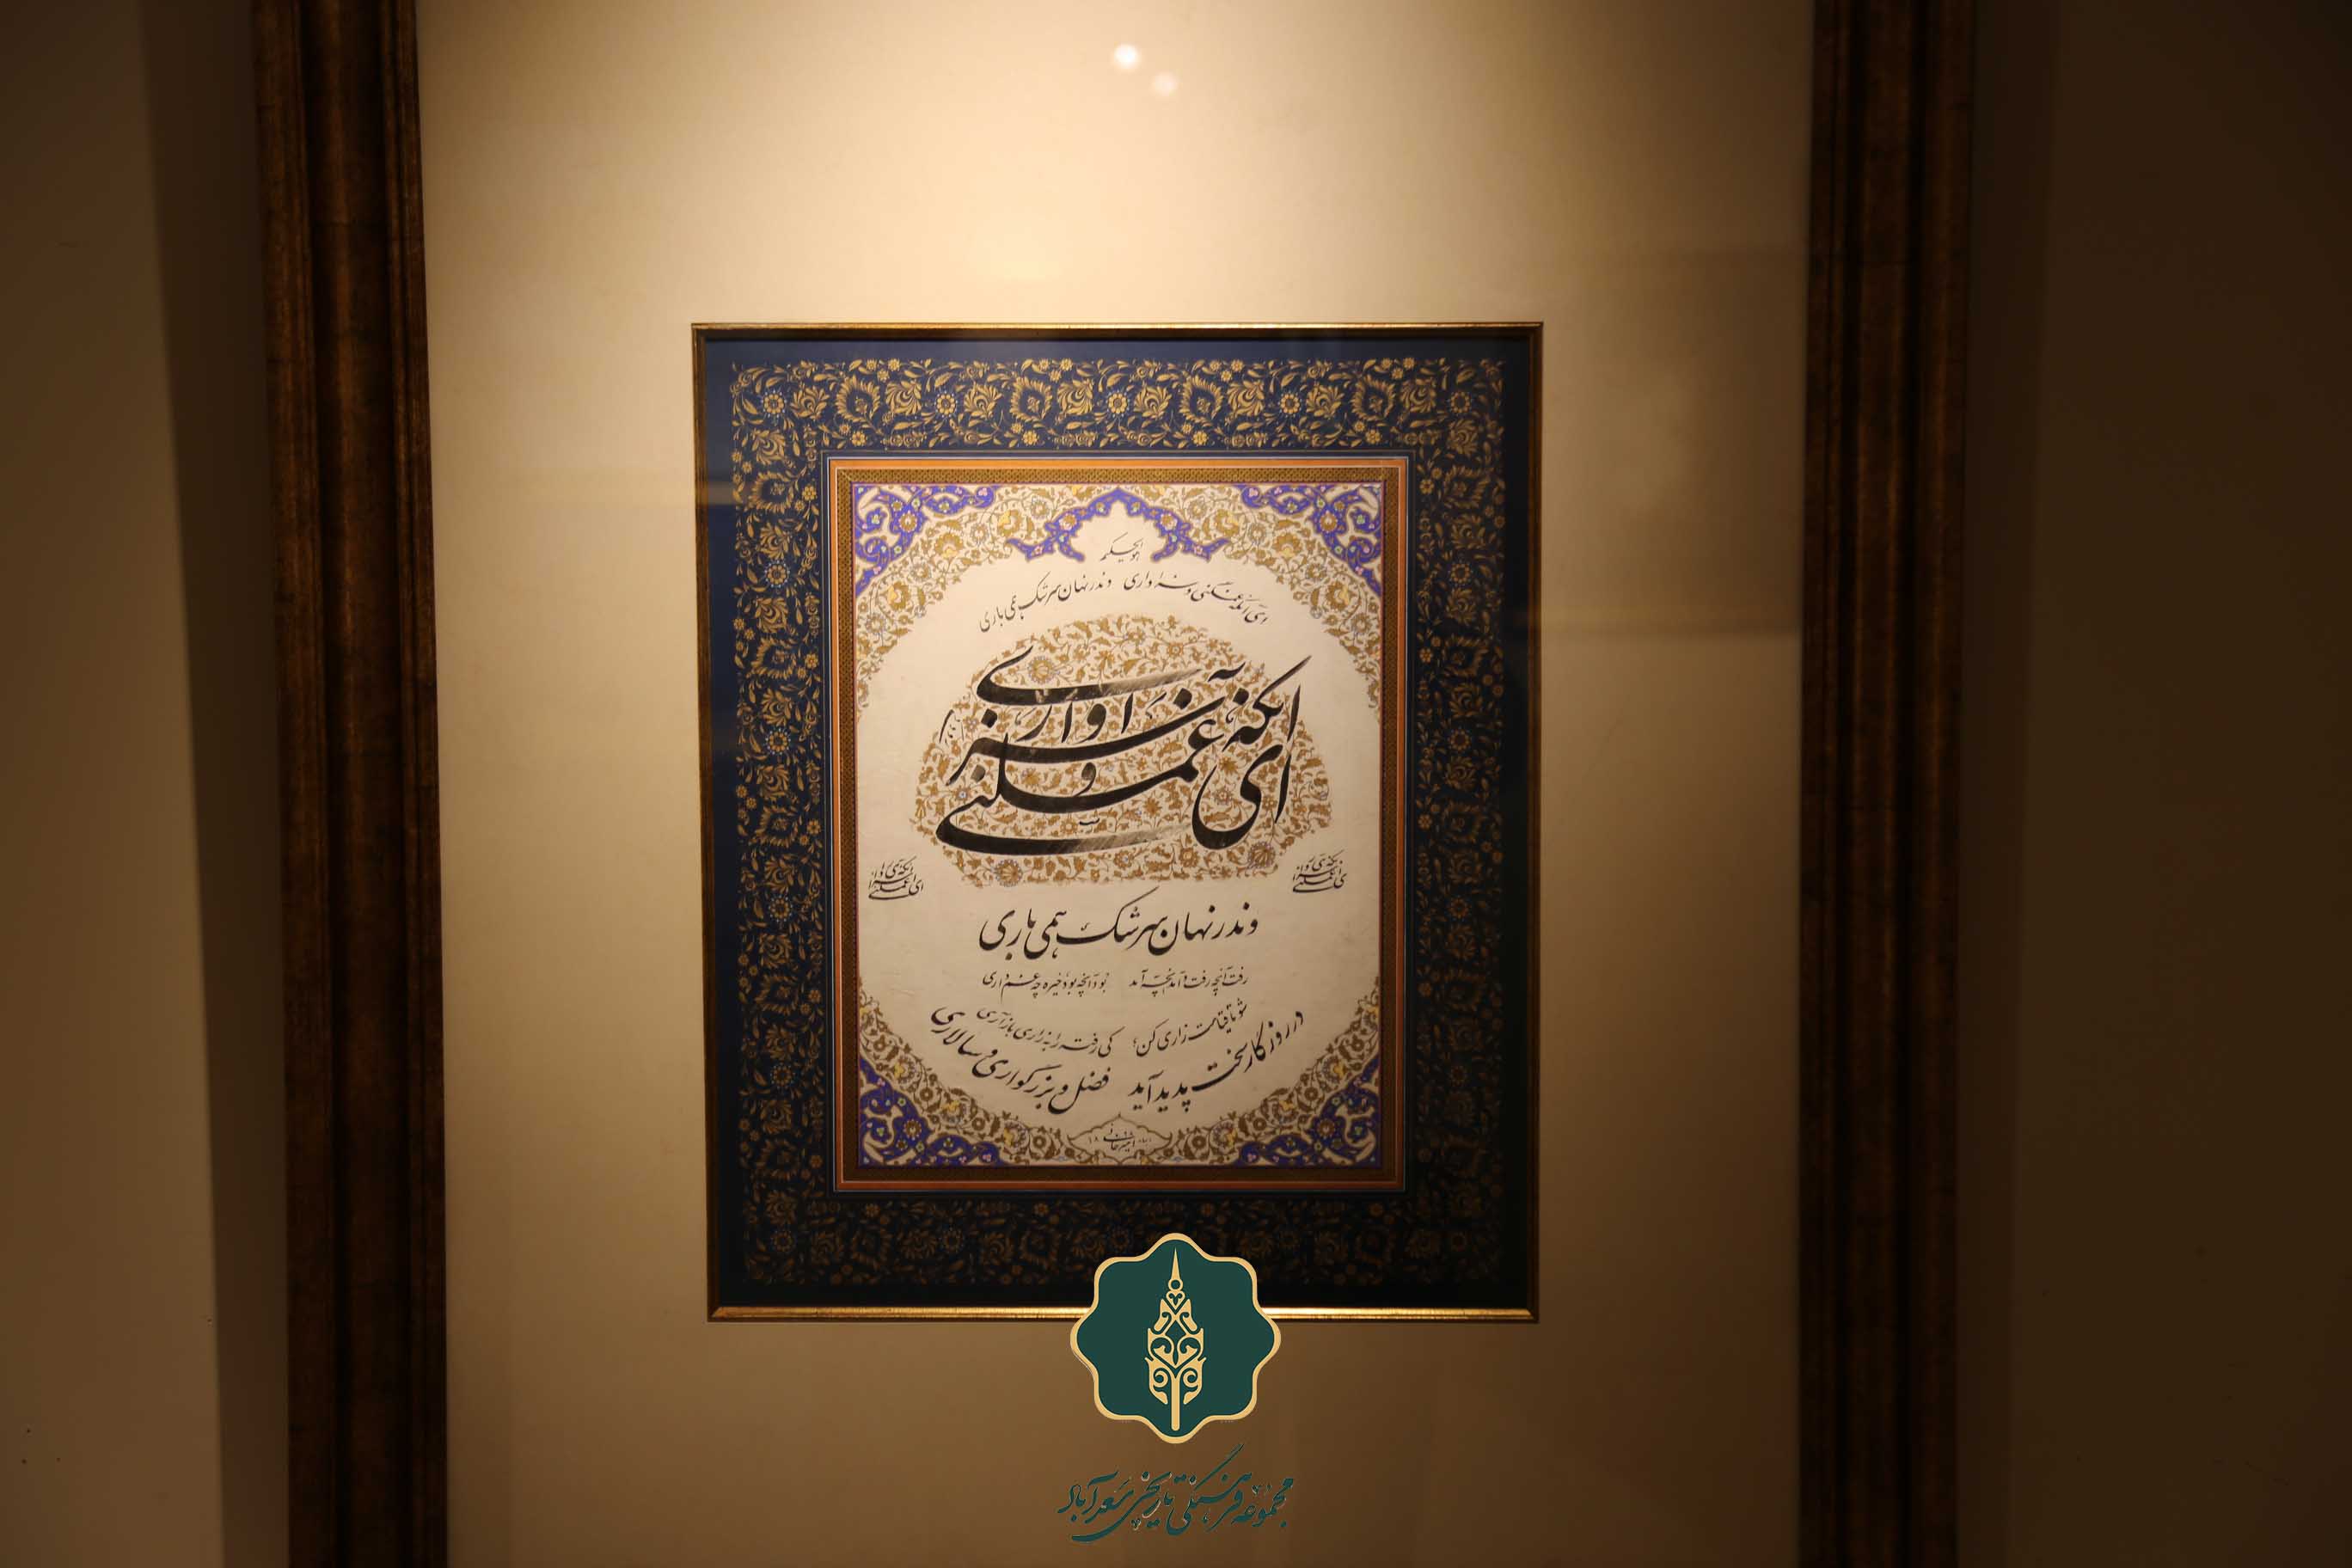 هوالحکیم
ای آنکه غمگنی و سزاواری وندر نهان سرشک همی باری
ای آنکه غمگنی و سزاواری
وندر نهان سرشک همی باری
رفت آنچه رفت و آمد آنچه آمد بود آنچه بود خیره چه غم داری
شو تا قیامت زاری کن؛ کی رفته را به زاری باز آری
در روزگار سخت پدید آید فضل و بزرگواری و سالاری
امیرخانی
مجموعه فرهنگی تاریخی سعدآباد